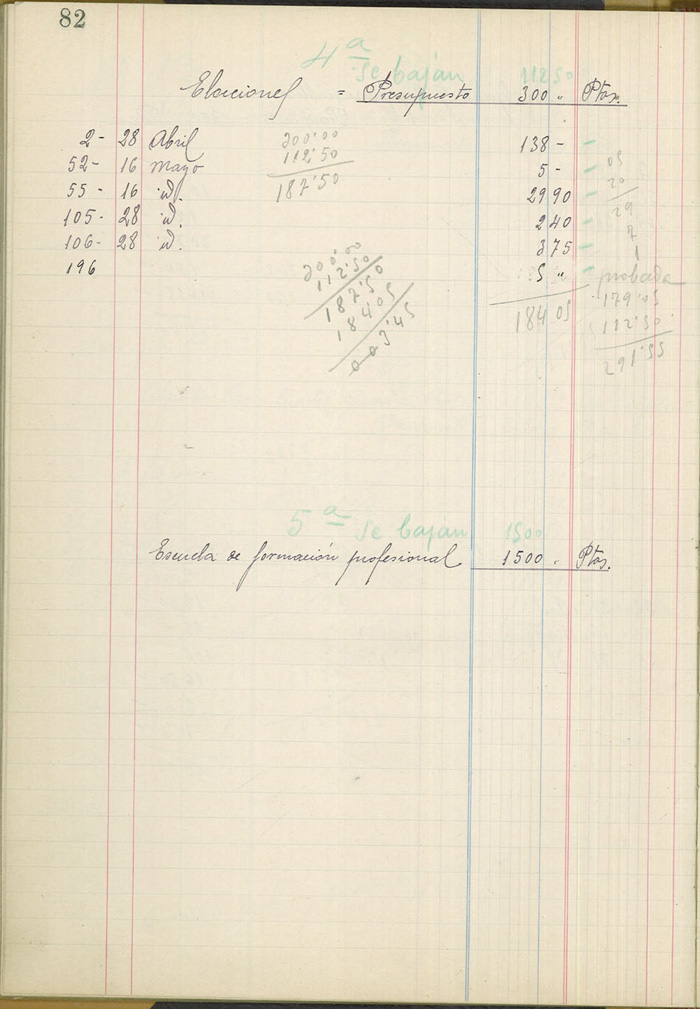 82
4ª
Se bajan 112 50
Elecciones = Presupuesto 300 " Ptas.
2- 28 Abril 300'00 138 - -
52- 16 Mayo 112'50 5 - - 05
55 - 16 id. 187'50 29 90 - 20
105- 28 id. 2 40 - 29
106- 28 id. 3 75 - 7
196 5 " - 1
probada
300'00
112'50
187'50
184'05
003'45
184 05
179'05
112'50
291'55
5ª Se bajan 1500
Escuela de formación profesional 1500 " Ptas.